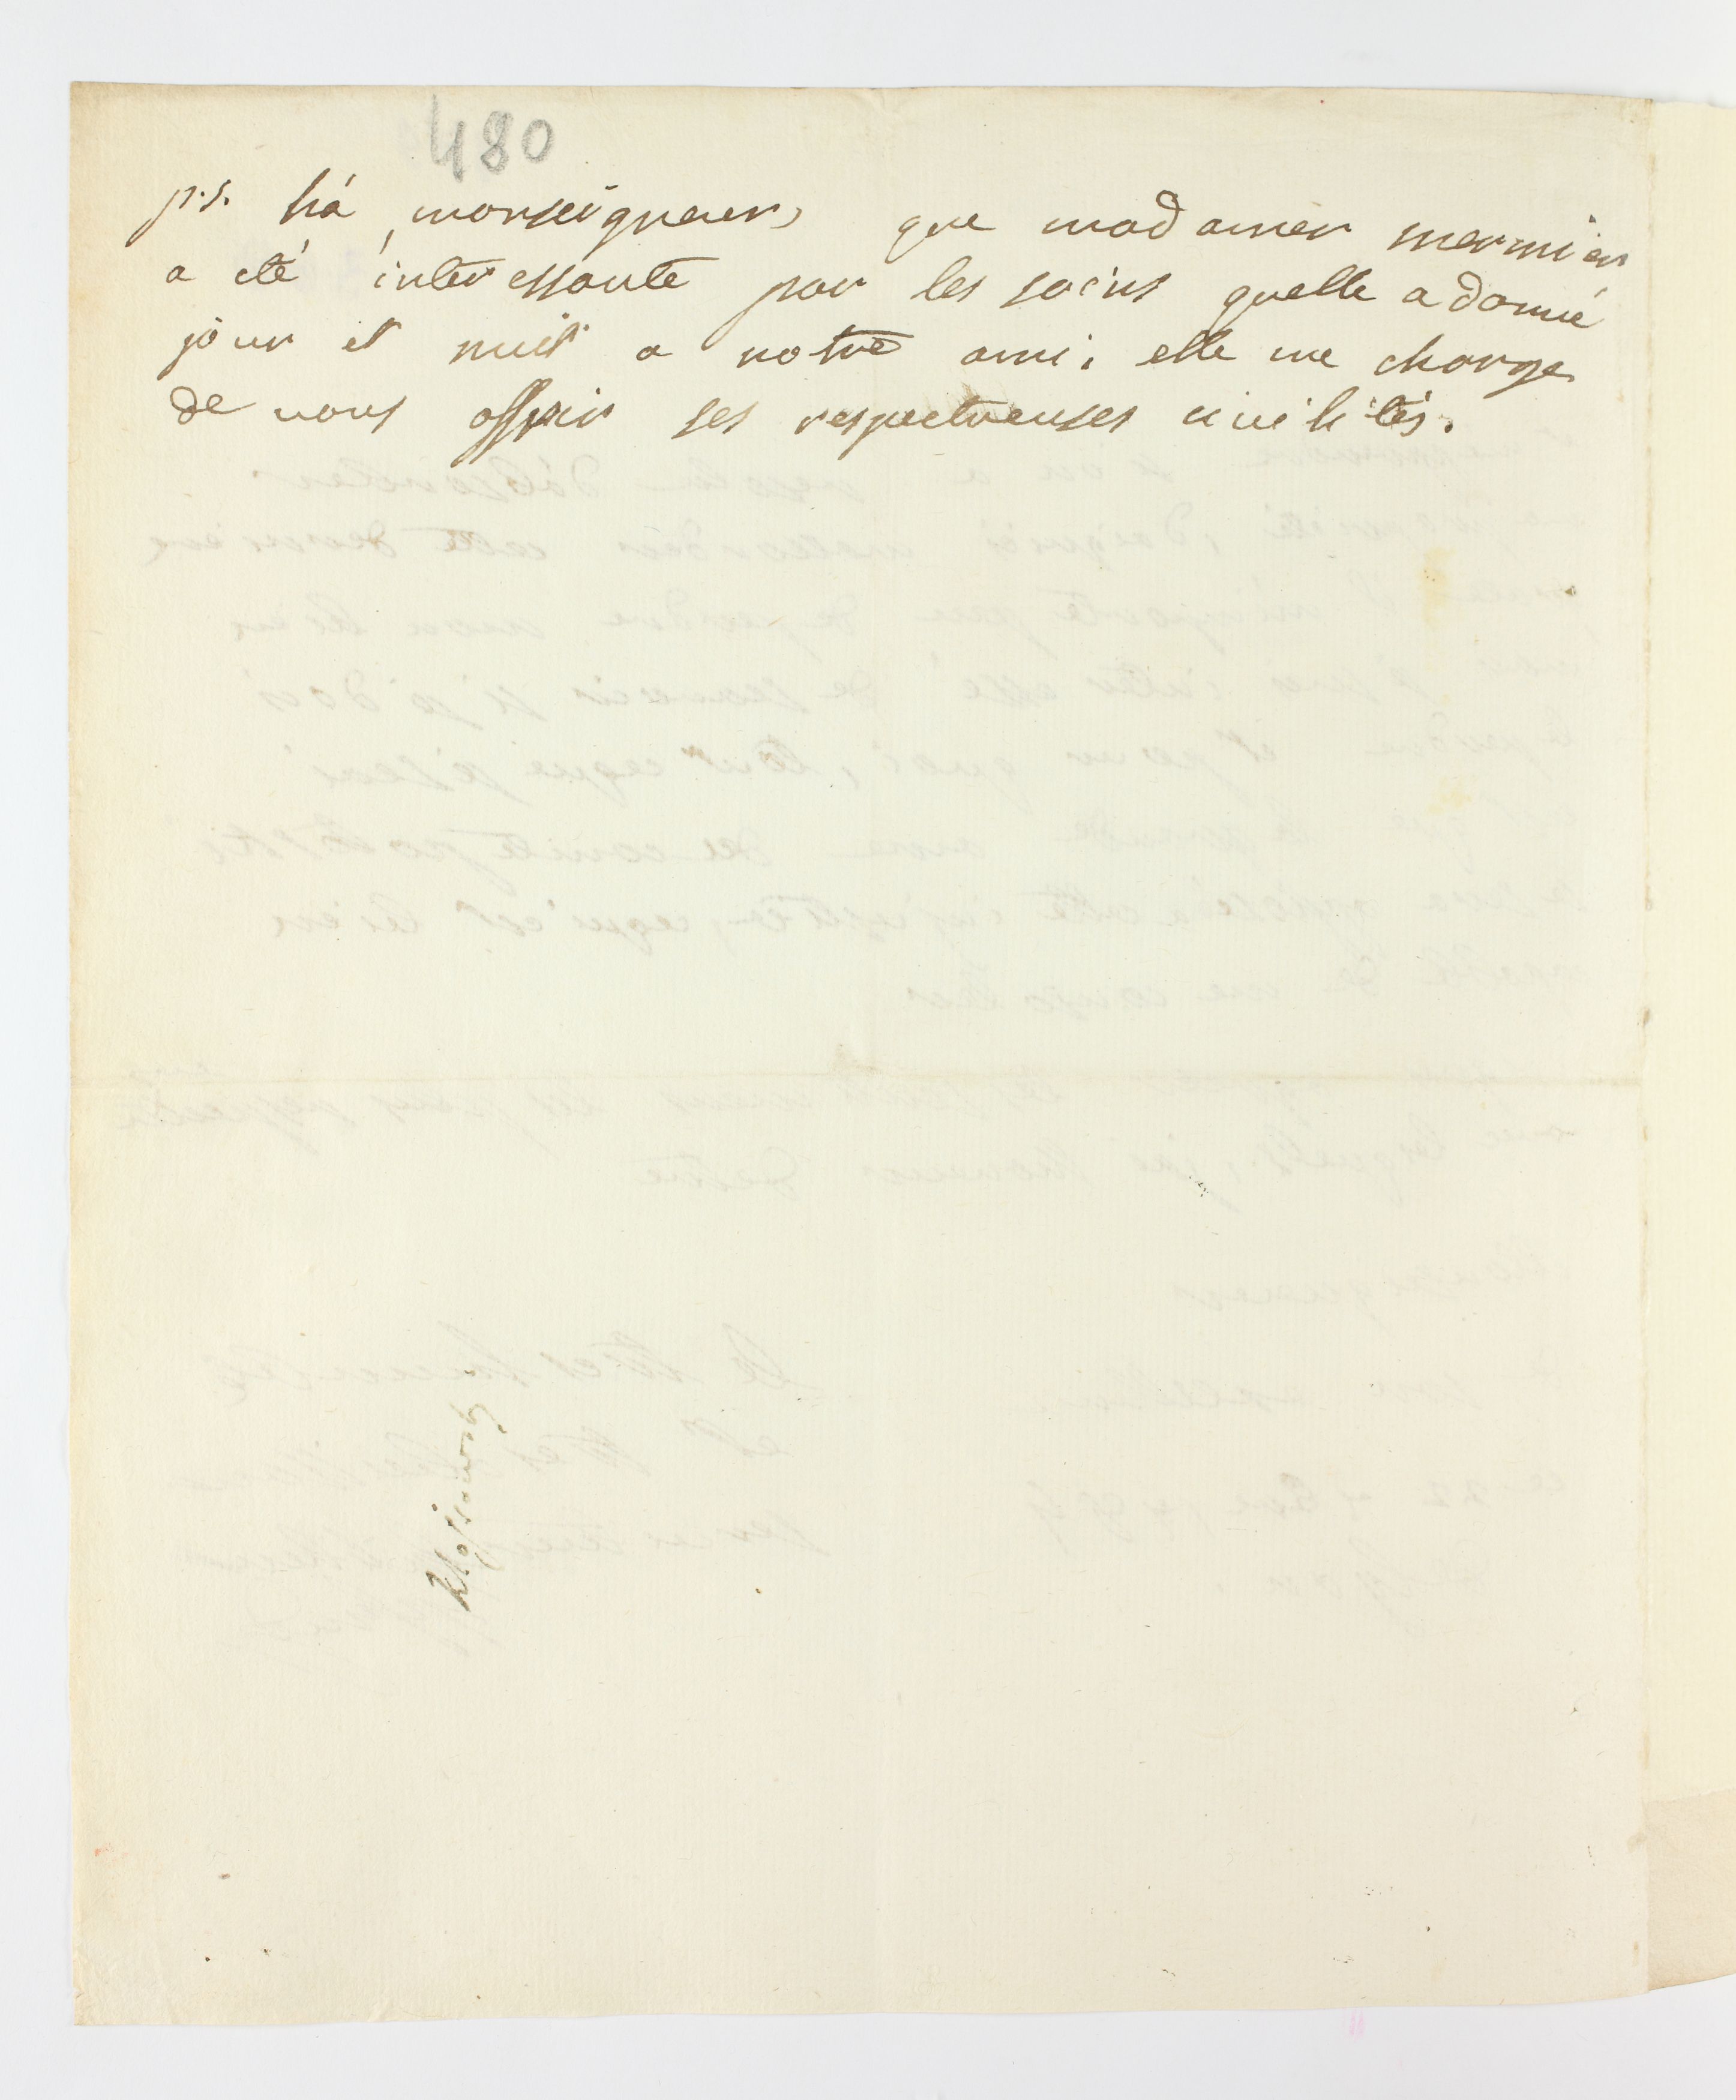 480
p.s. há, monseigneur, que madamer mermier
a eté interessante par les soins quelle a donné
jour et nuit a notre ami, elle me charge
de vous offrir ses respectueuses civilités.